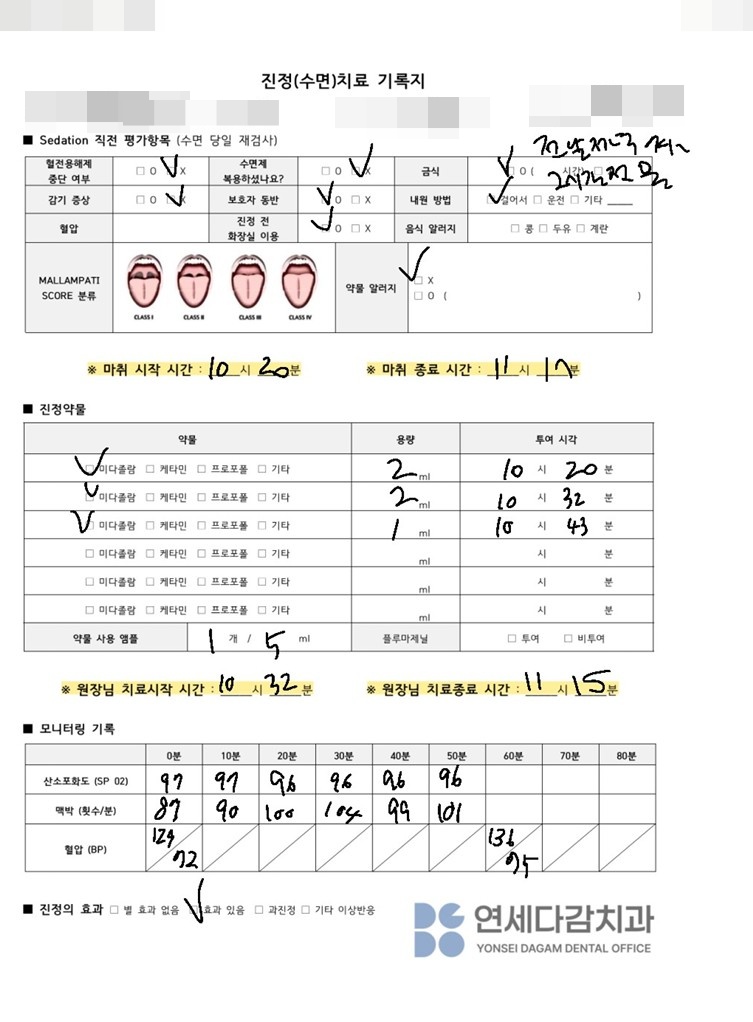 진정(수면)치료 기록지
■ Sedation 직전 평가항목 (수면 당일 재검사)
혈전용해제 중단 여부 □ O ✓ X 수면제 복용하셨나요? □ O ✓ X 금식 ✓ O ( 시간) 전날저녁
2시간전 물
감기 증상 □ O ✓ X 보호자 동반 ✓ O □ X 내원 방법 ✓ 걸어서 □ 운전 □ 기타 _____
혈압 진정 전 화장실 이용 ✓ O □ X 음식 알러지 □ 콩 □ 두유 □ 계란
MALLAMPATI SCORE 분류 CLASS I CLASS II CLASS III CLASS IV 약물 알러지 ✓ X
□ O ( )
※ 마취 시작 시간 : 10 시 20 분 ※ 마취 종료 시간 : 11 시 17 분
■ 진정약물
약물 용량 투여 시각
✓ 미다졸람 □ 케타민 □ 프로포폴 □ 기타 2 ml 10 시 20 분
✓ 미다졸람 □ 케타민 □ 프로포폴 □ 기타 2 ml 10 시 32 분
✓ 미다졸람 □ 케타민 □ 프로포폴 □ 기타 1 ml 10 시 43 분
□ 미다졸람 □ 케타민 □ 프로포폴 □ 기타 ml 시 분
□ 미다졸람 □ 케타민 □ 프로포폴 □ 기타 ml 시 분
□ 미다졸람 □ 케타민 □ 프로포폴 □ 기타 ml 시 분
약물 사용 앰플 1 개 / 5 ml 플루마제닐 □ 투여 □ 비투여
※ 원장님 치료시작 시간 : 10 시 32 분 ※ 원장님 치료종료 시간 : 11 시 15 분
■ 모니터링 기록
0분 10분 20분 30분 40분 50분 60분 70분 80분
산소포화도 (SP 02) 97 97 96 96 96 96
맥박 (횟수/분) 87 90 100 104 99 101
혈압 (BP) 129/72 136/75
■ 진정의 효과 □ 별 효과 없음 ✓ 효과 있음 □ 과진정 □ 기타 이상반응
연세다감치과
YONSEI DAGAM DENTAL OFFICE